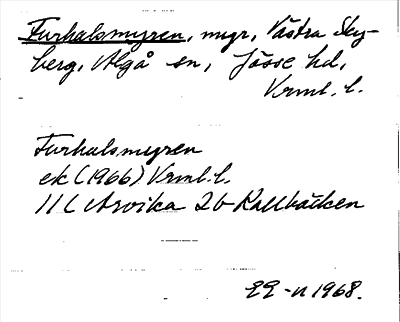 Furhalsmyren, myr, Västra Sky-
berg, Älgå sn, Jösse hd,
Vrml. l.
Furhalsmyren
ek (1966) Vrml. l.
11 C Arvika 2 b Kallbäcken
1968.